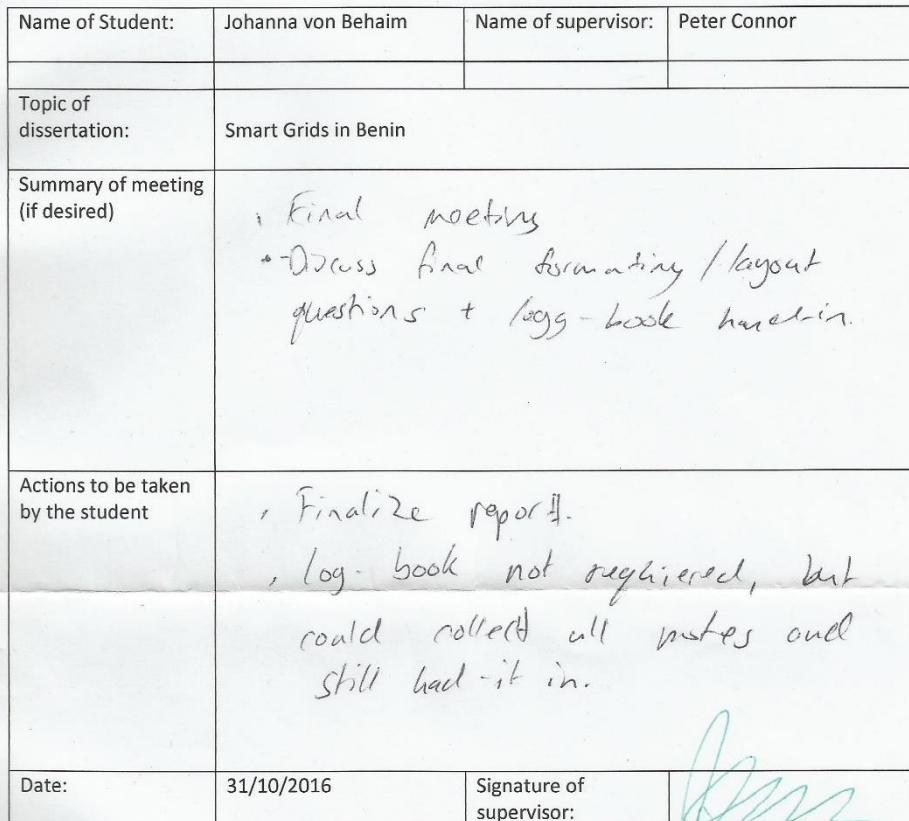 Name of Student: Johanna von Behaim Name of supervisor: Peter Connor
Topic of
dissertation:
Smart Grids in Benin
Summary of meeting
(if desired)
Final meeting
Discuss final formating / layout
questions + logg-book hand-in.
Actions to be taken
by the student
Finalize report.
log-book not reqhiered, but
could collect all notes and
still had-it in.
Date: 31/10/2016 Signature of
supervisor: